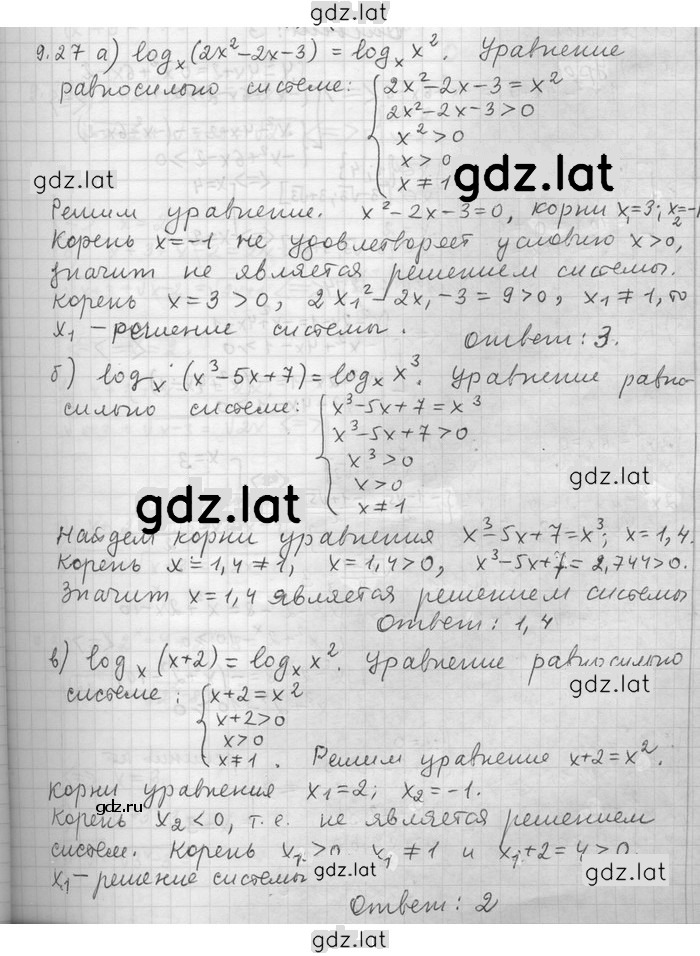 gdz.lat
9.27 а) log_x(2x²-2x-3) = log_x x². Уравнение
равносильно системе: { 2x²-2x-3=x²
2x²-2x-3>0
x²>0
x>0
x≠1
gdz.lat
gdz.lat
Решим уравнение. x²-2x-3=0, корни x₁=3; x₂=-1
Корень x=-1 не удовлетворяет условию x>0,
значит не является решением системы.
Корень x=3>0, 2x₁²-2x₁-3=9>0, x₁≠1, то
x₁-решение системы.
Ответ: 3.
б) log_x(x³-5x+7)=log_x x³. Уравнение равно-
сильно системе: { x³-5x+7=x³
x³-5x+7>0
x³>0
x>0
x≠1
gdz.lat
gdz.lat
Найдем корни уравнения x³-5x+7=x³; x=1,4.
Корень x=1,4≠1, x=1,4>0, x³-5x+7=2,744>0.
Значит x=1,4 является решением системы
Ответ: 1,4
в) log_x(x+2)=log_x x². Уравнение равносильно
системе: { x+2=x²
x+2>0
x>0
x≠1. Решим уравнение x+2=x².
gdz.lat
Корни уравнения x₁=2; x₂=-1.
www.gdz.ru
Корень x₂<0, т.е. не является решением
систем. Корень x₁>0 x₁≠1 и x₁+2=4>0.
x₁-решение системы
gdz.lat
gdz.lat
Ответ: 2
gdz.lat